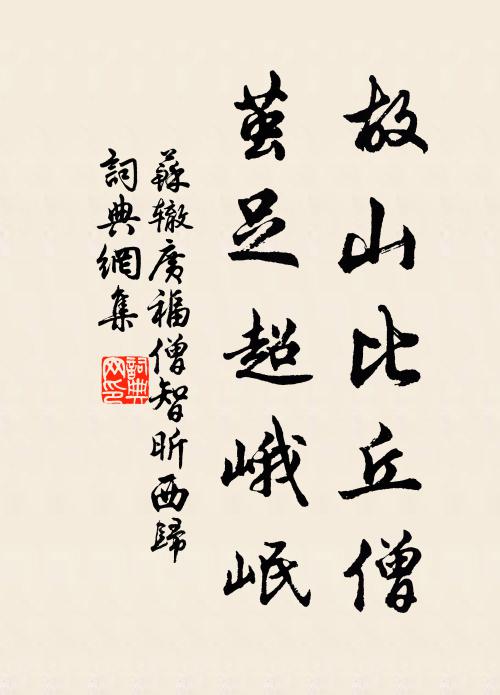 故山比丘僧
茧足超峨岷
蘇辙廣福僧智昕西歸
詞典網集
詞典
网印